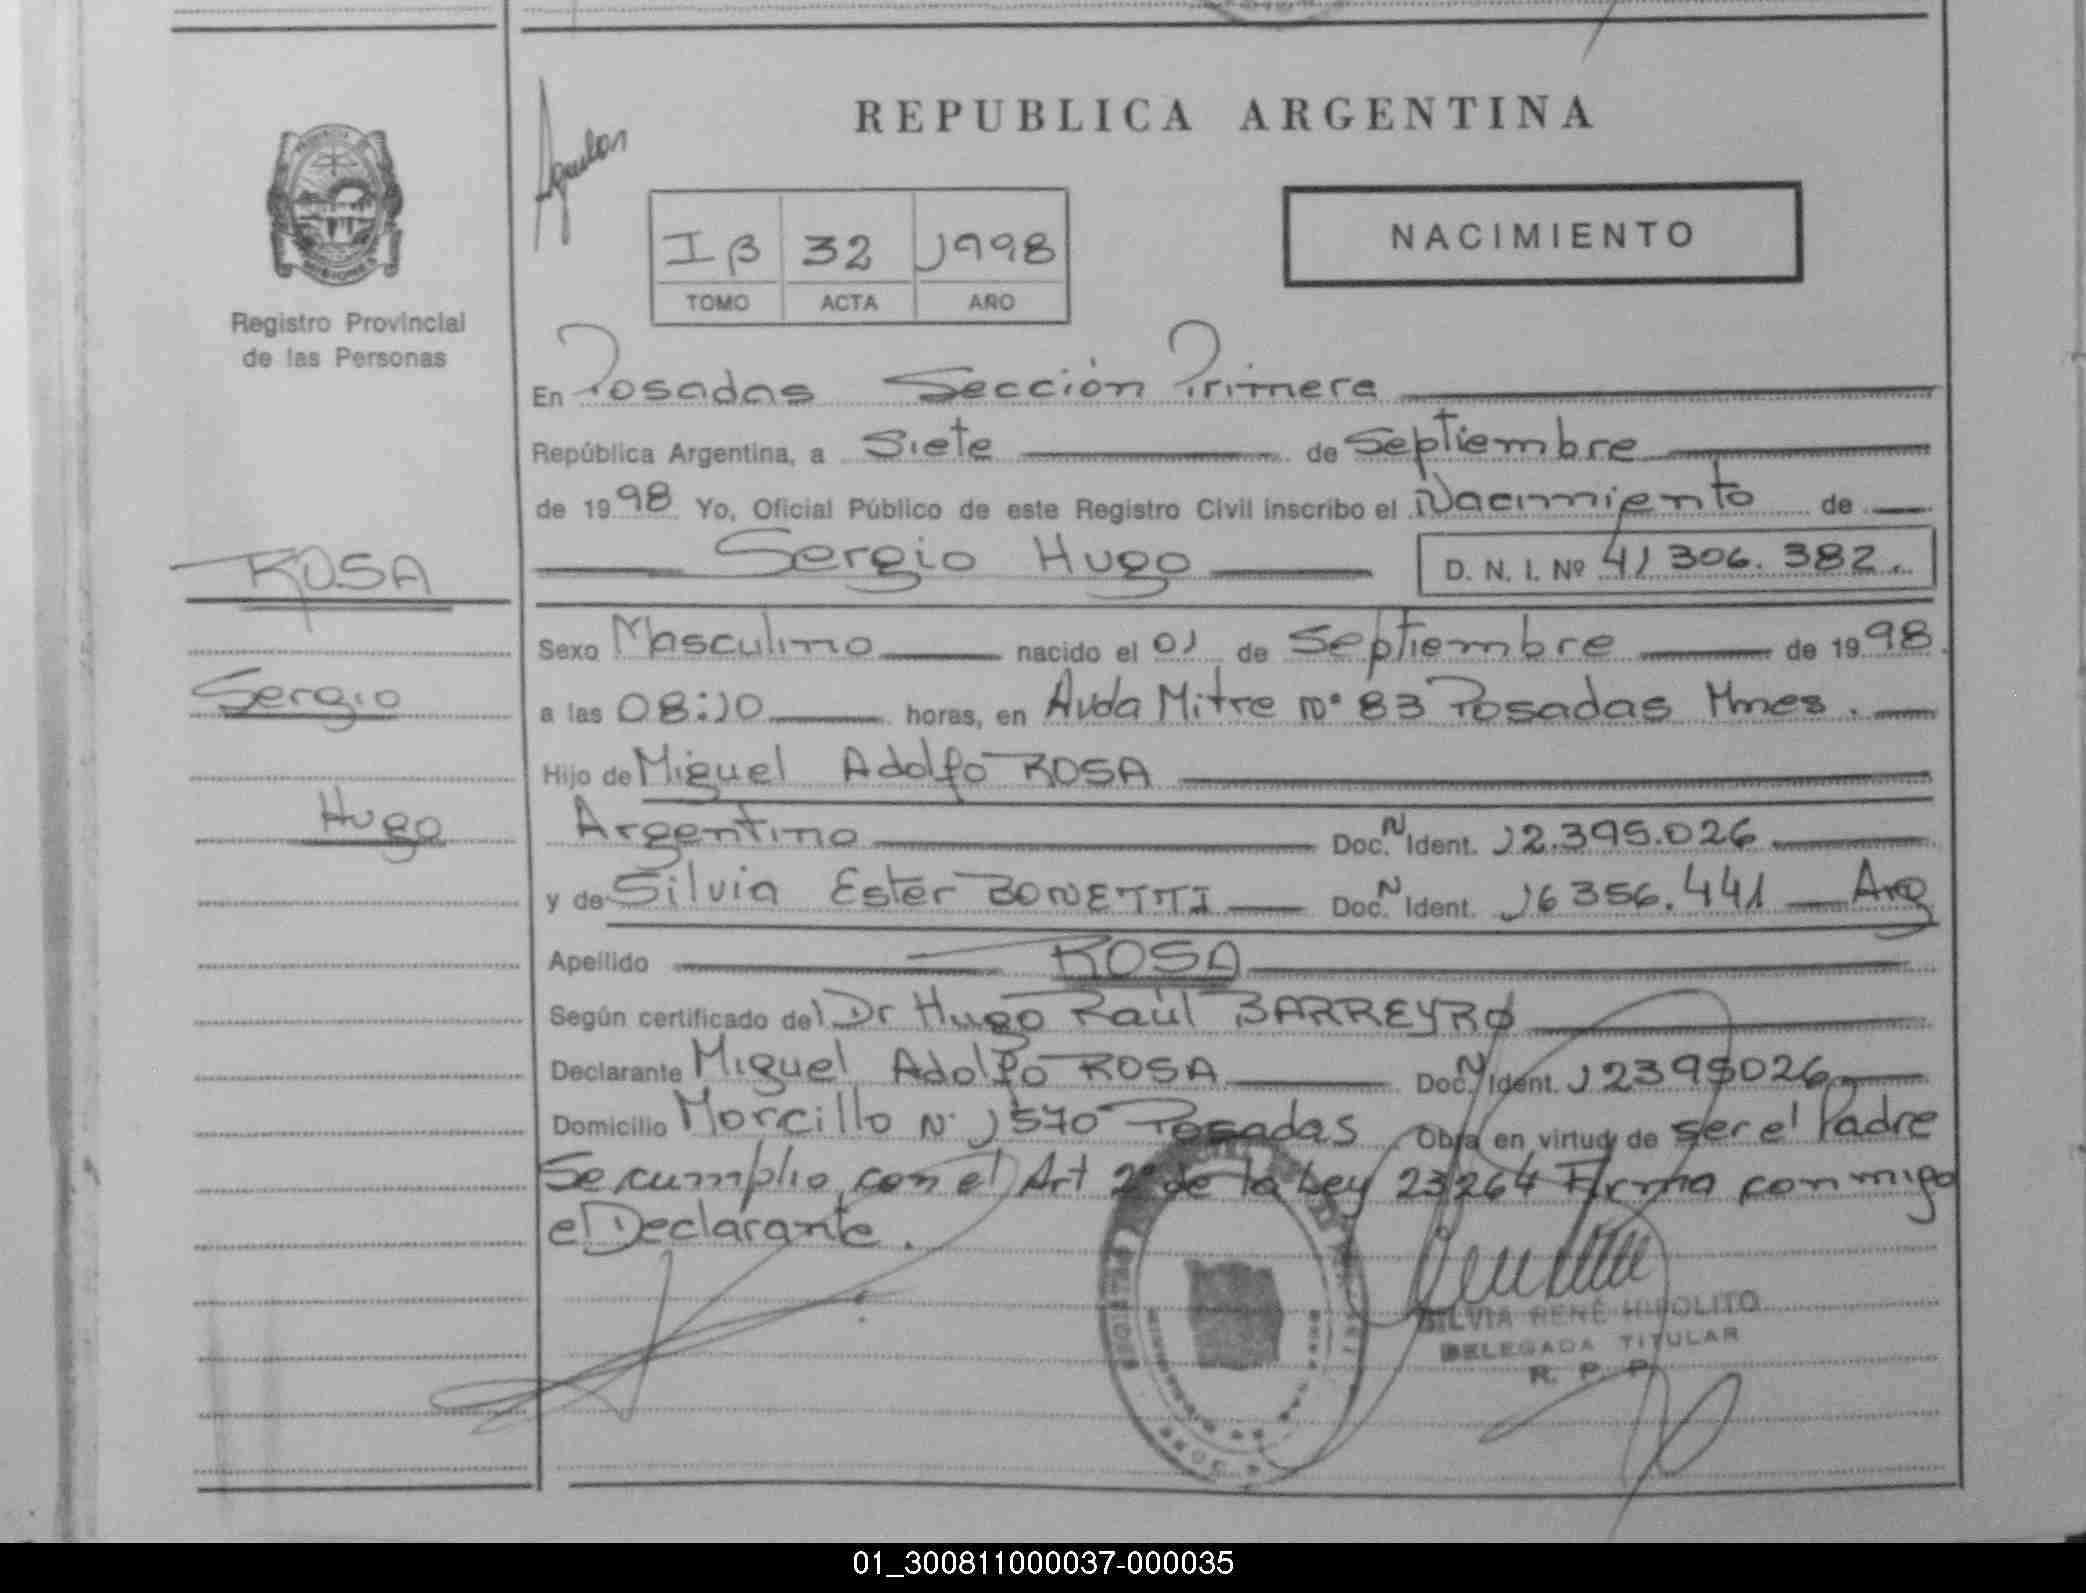 REPUBLICA ARGENTINA
Aguilar
MISIONES
Registro Provincial
de las Personas
I B 32 1998
TOMO ACTA AÑO
NACIMIENTO
En Posadas Sección Primera
República Argentina, a Siete de Septiembre
de 1998 Yo, Oficial Público de este Registro Civil inscribo el Nacimiento de
Sergio Hugo D. N. I. Nº 41 306. 382.
ROSA
Sergio
Hugo
Sexo Masculino nacido el 01 de Septiembre de 1998
a las 08:10 horas, en Avda Mitre Nº 83 Posadas Mnes.
Hijo de Miguel Adolfo ROSA
Argentino Doc. N Ident. 12.395.026
y de Silvia Ester BONETTI Doc. N Ident. 16 356.441 Arg
Apellido ROSA
Según certificado del Dr Hugo Raúl BARREYRO
Declarante Miguel Adolfo ROSA Doc. N Ident. 12395026
Domicilio Morcillo Nº 1570 Posadas Obra en virtud de ser el Padre
Se cumplio con el Art 2º de la Ley 23264 Firma conmigo
el Declarante.
SILVIA RENÉ HIPOLITO
DELEGADA TITULAR
R. P. P.
01_300811000037-000035